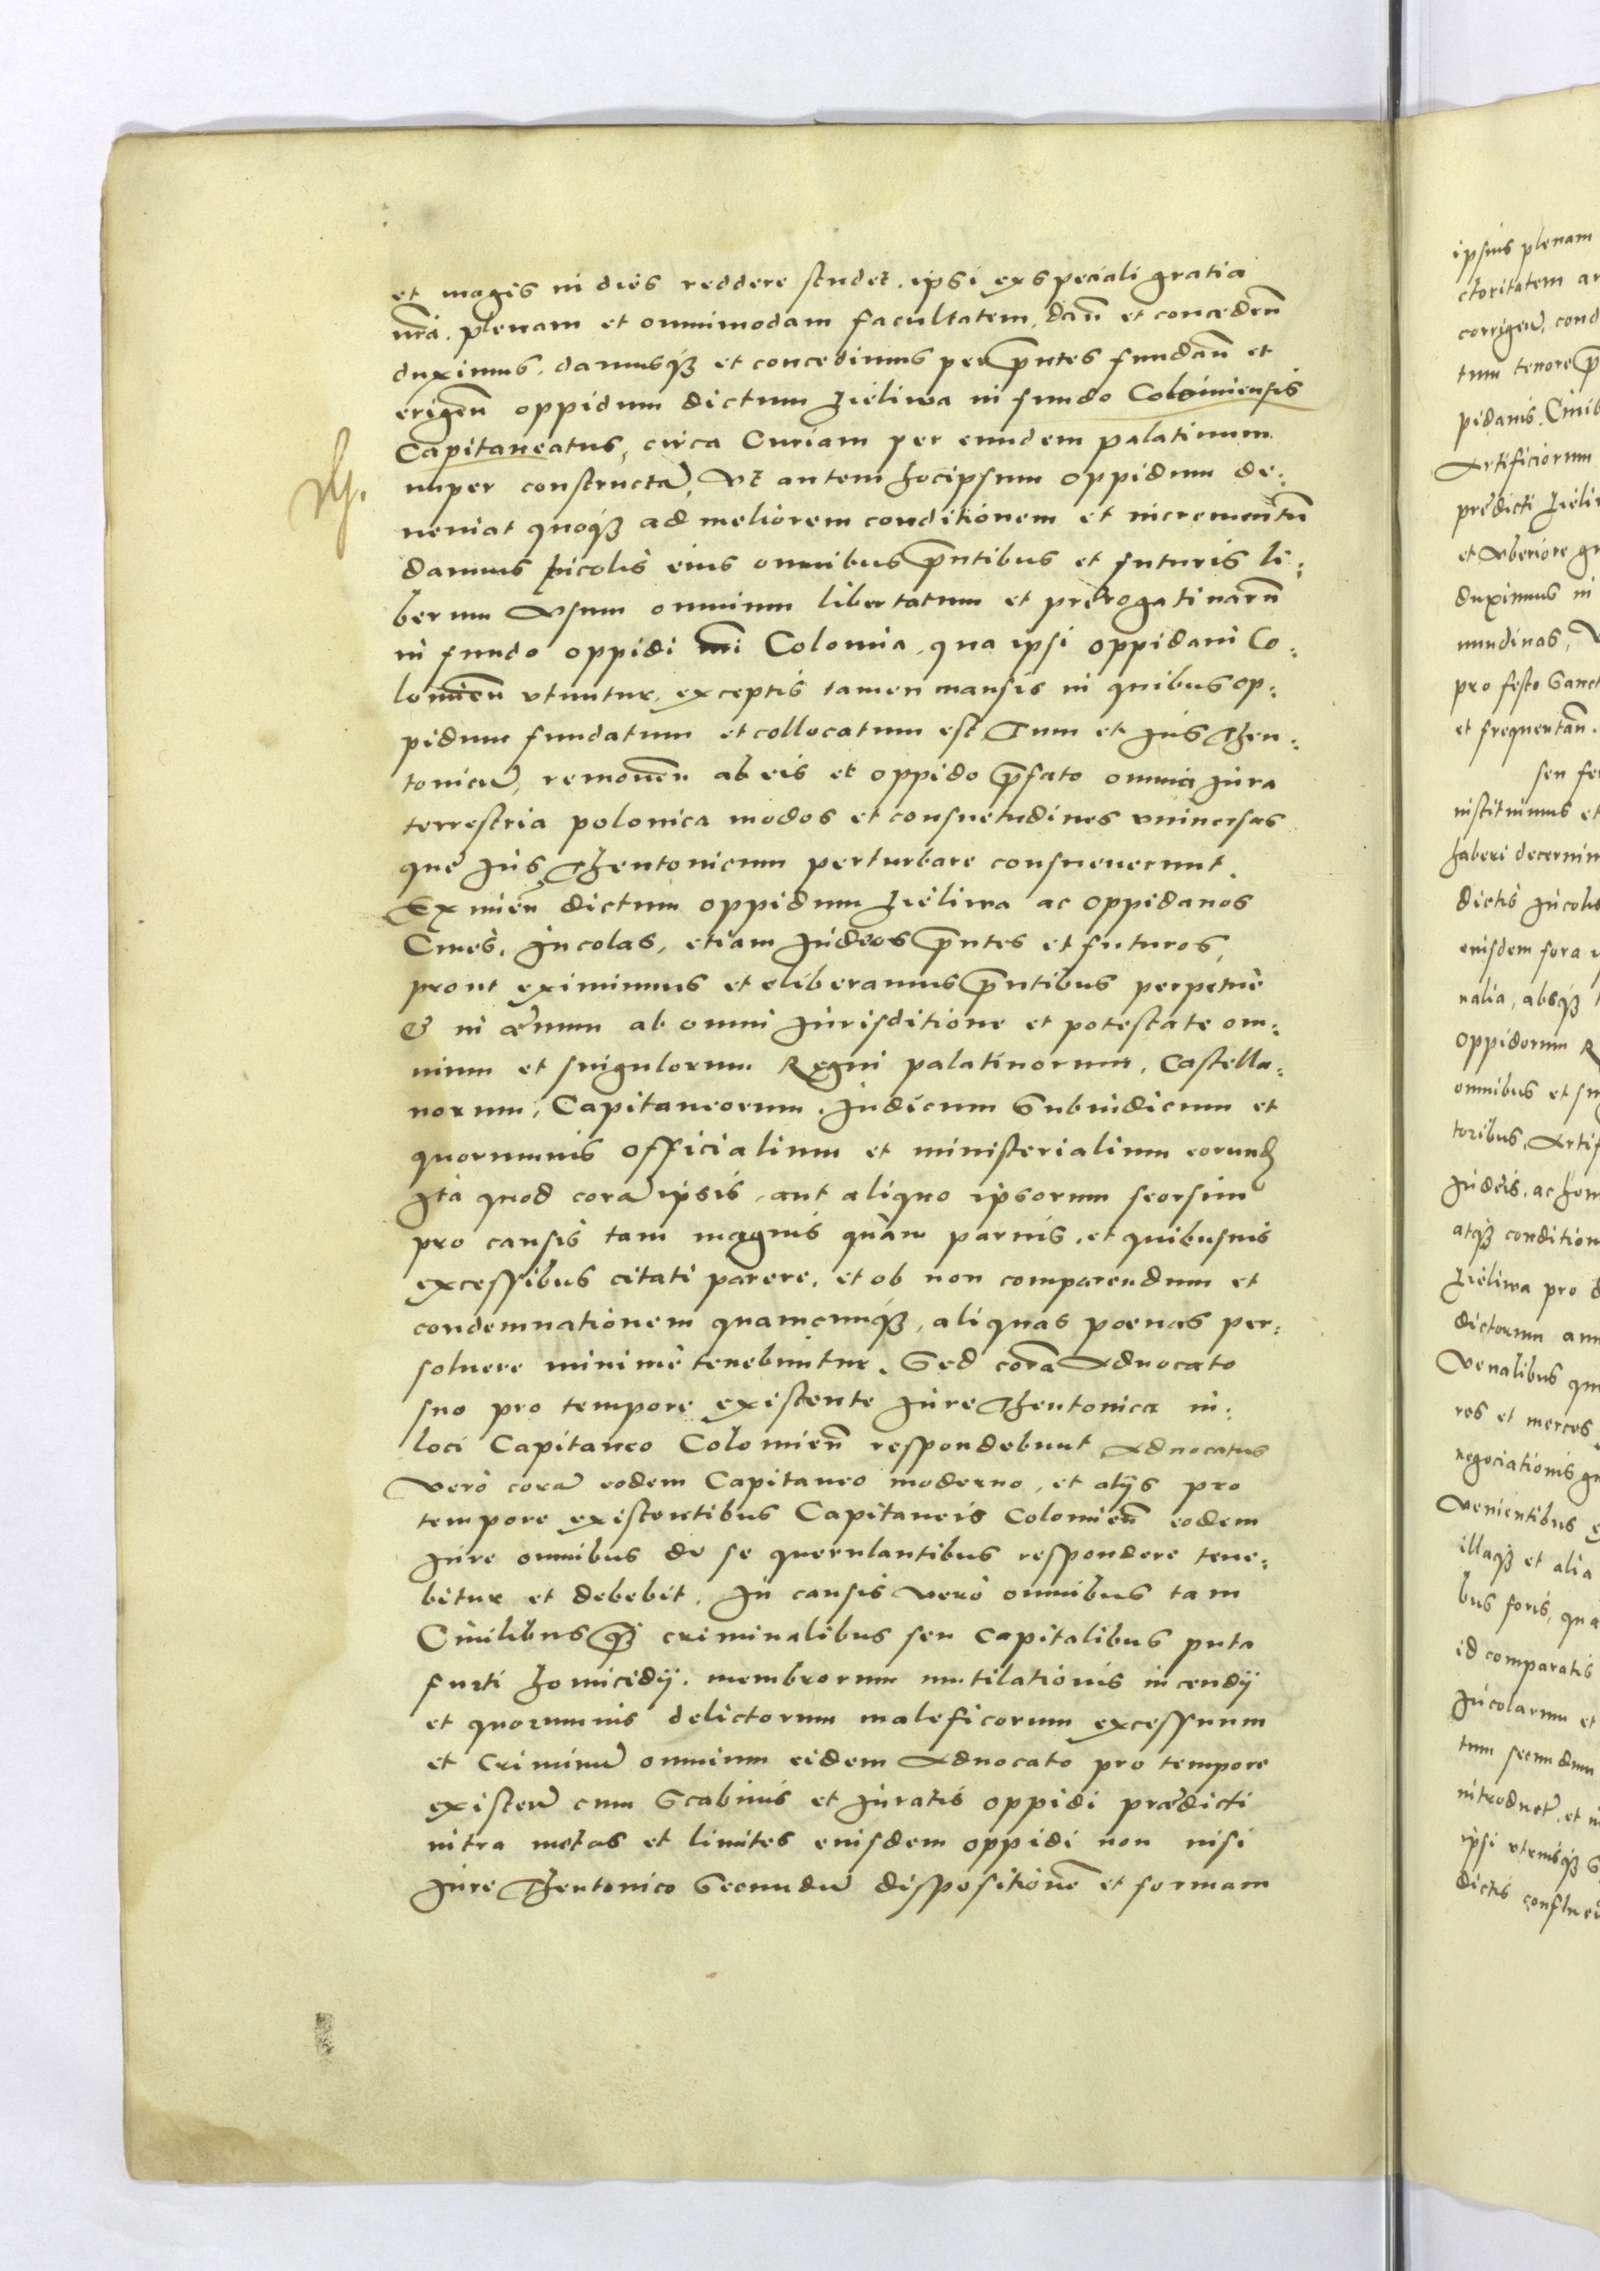 et magis in dies reddere studet. ipsi ex speciali gratia
nrã. plenam et omnimodam facultatem, dañ et concedeñ
duximus. damusq3 et concedimus per p̃ntes fundañ et
erigeñ oppidum dictum Jieliwa in fundo Colomiensis
Capitaneatus, circa Curiam per eundem palatinum
nuper constructã, Vt autem hocipsum oppidum de:
ueniat quoq3 ad meliorem conditionem et incrementũ
damus incolis eius omnibus p̃ntibus et futuris li:
berum Vsum omnium libertatum et prerogatiuarũ
in fundo oppidi Colomia, qua ipsi oppidani Co:
lomieñ vtuntur, exceptis tamen mansis in quibus op:
pidum fundatum et collocatum est Tum et Jus Theu:
tonicũ, remoueñ ab eis et oppido p̃fato omnia Jura
terrestria polonica modos et consuetudines vniuersas
que Jus Theutonicum perturbare consueuerunt.
Eximeñ dictum oppidum Jieliwa ac oppidanos
Ciues, Incolas, etiam Judeos p̃ntes et futuros,
prout eximimus et eliberamus p̃ntibus perpetuè
& in æuum ab omni Jurisditione et potestate om:
nium et singulorum Regni palatinorum, Castella:
norum, Capitaneorum, Judicum Subiudicum et
quorumuis officialium et ministerialium eorund
Ita quod corã ipsis, aut aliquo ipsorum seorsim
pro causis tam magnis quàm paruis, et quibusuis
excessibus citati parere, et ob non comparendum et
condemnationem quamcunq3, aliquas poenas per:
soluere minimè tenebuntur. Sed corã Aduocato
suo pro tempore existente Jure Theutonica in:
loci Capitaneo Colomieñ respondebunt Aduocatus
verò corã eodem Capitaneo moderno, et alijs pro
tempore existentibus Capitaneis Colomieñ eodem
Jure omnibus de se querulantibus respondere tene:
bitur et debebit. In causis verò omnibus tam
Ciuilibus q̃3 criminalibus seu capitalibus puta
furti homicidij, membrorum mutilationis incendij
et quorumuis delictorum maleficorum excessuum
et criminũ omnium eidem Aduocato pro tempore
existeñ cum Scabinis et Juratis oppidi prædicti
intra metas et limites eiusdem oppidi non nisi
Jure Theutonico Secundũ dispositionẽ et formam
ipsius plenam
ctoritatem
corrigeñ, cond
tum tenore p̃
pidanis, Ciuib
Artificiorum
predicti Jieli
et vberiore gr
duximus in
nundinas,
pro festo Sanct
et frequentañ.
seu fe
instituimus et
haberi decernim
dictis Incolis
eiusdem fora
nalia, absq3
oppidorum R
omnibus et sin
toribus, Artif
Judeis, ac hom
atq3 condition
Jieliwa pro d
dictorum ann
Venalibus qu
res et merces
negociationis
Venientibus
illaq3 et alia
bus foris, qua
id comparatis
Incolarum et
tum secundum
introduct, et
ipsi vtrusq3
dictis conflu